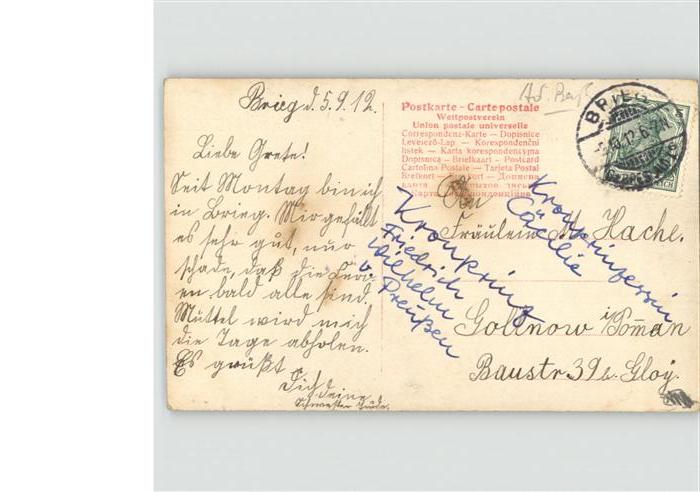 Brieg d. 5.9.12.
Liebe Grete!
Seit Montag bin ich
in Brieg. Mir gefällt
es sehr gut, nur
schade, daß die Feri-
en bald alle sind.
Muttel wird mich
die Tage abholen.
Es grüßt
Dich
deine
Schwester
Postkarte - Carte postale
Weltpostverein
Union postale universelle
Correspondenz-Karte — Dopisnice
Levelező-Lap — Korespondenční
listek — Karta korespondencyjna
Dopisnica — Briefkaart — Postcard
Cartolina Postale — Tarjeta Postal
Brefkort
BRIEG
An
Fräulein M. Hache.
Gollnow i. Pom̄
Baustr. 39 b. Gloy.
Kronprinz
Friedrich
Wilhelm
v. Preußen
Kronprinzessin
Cäcilie